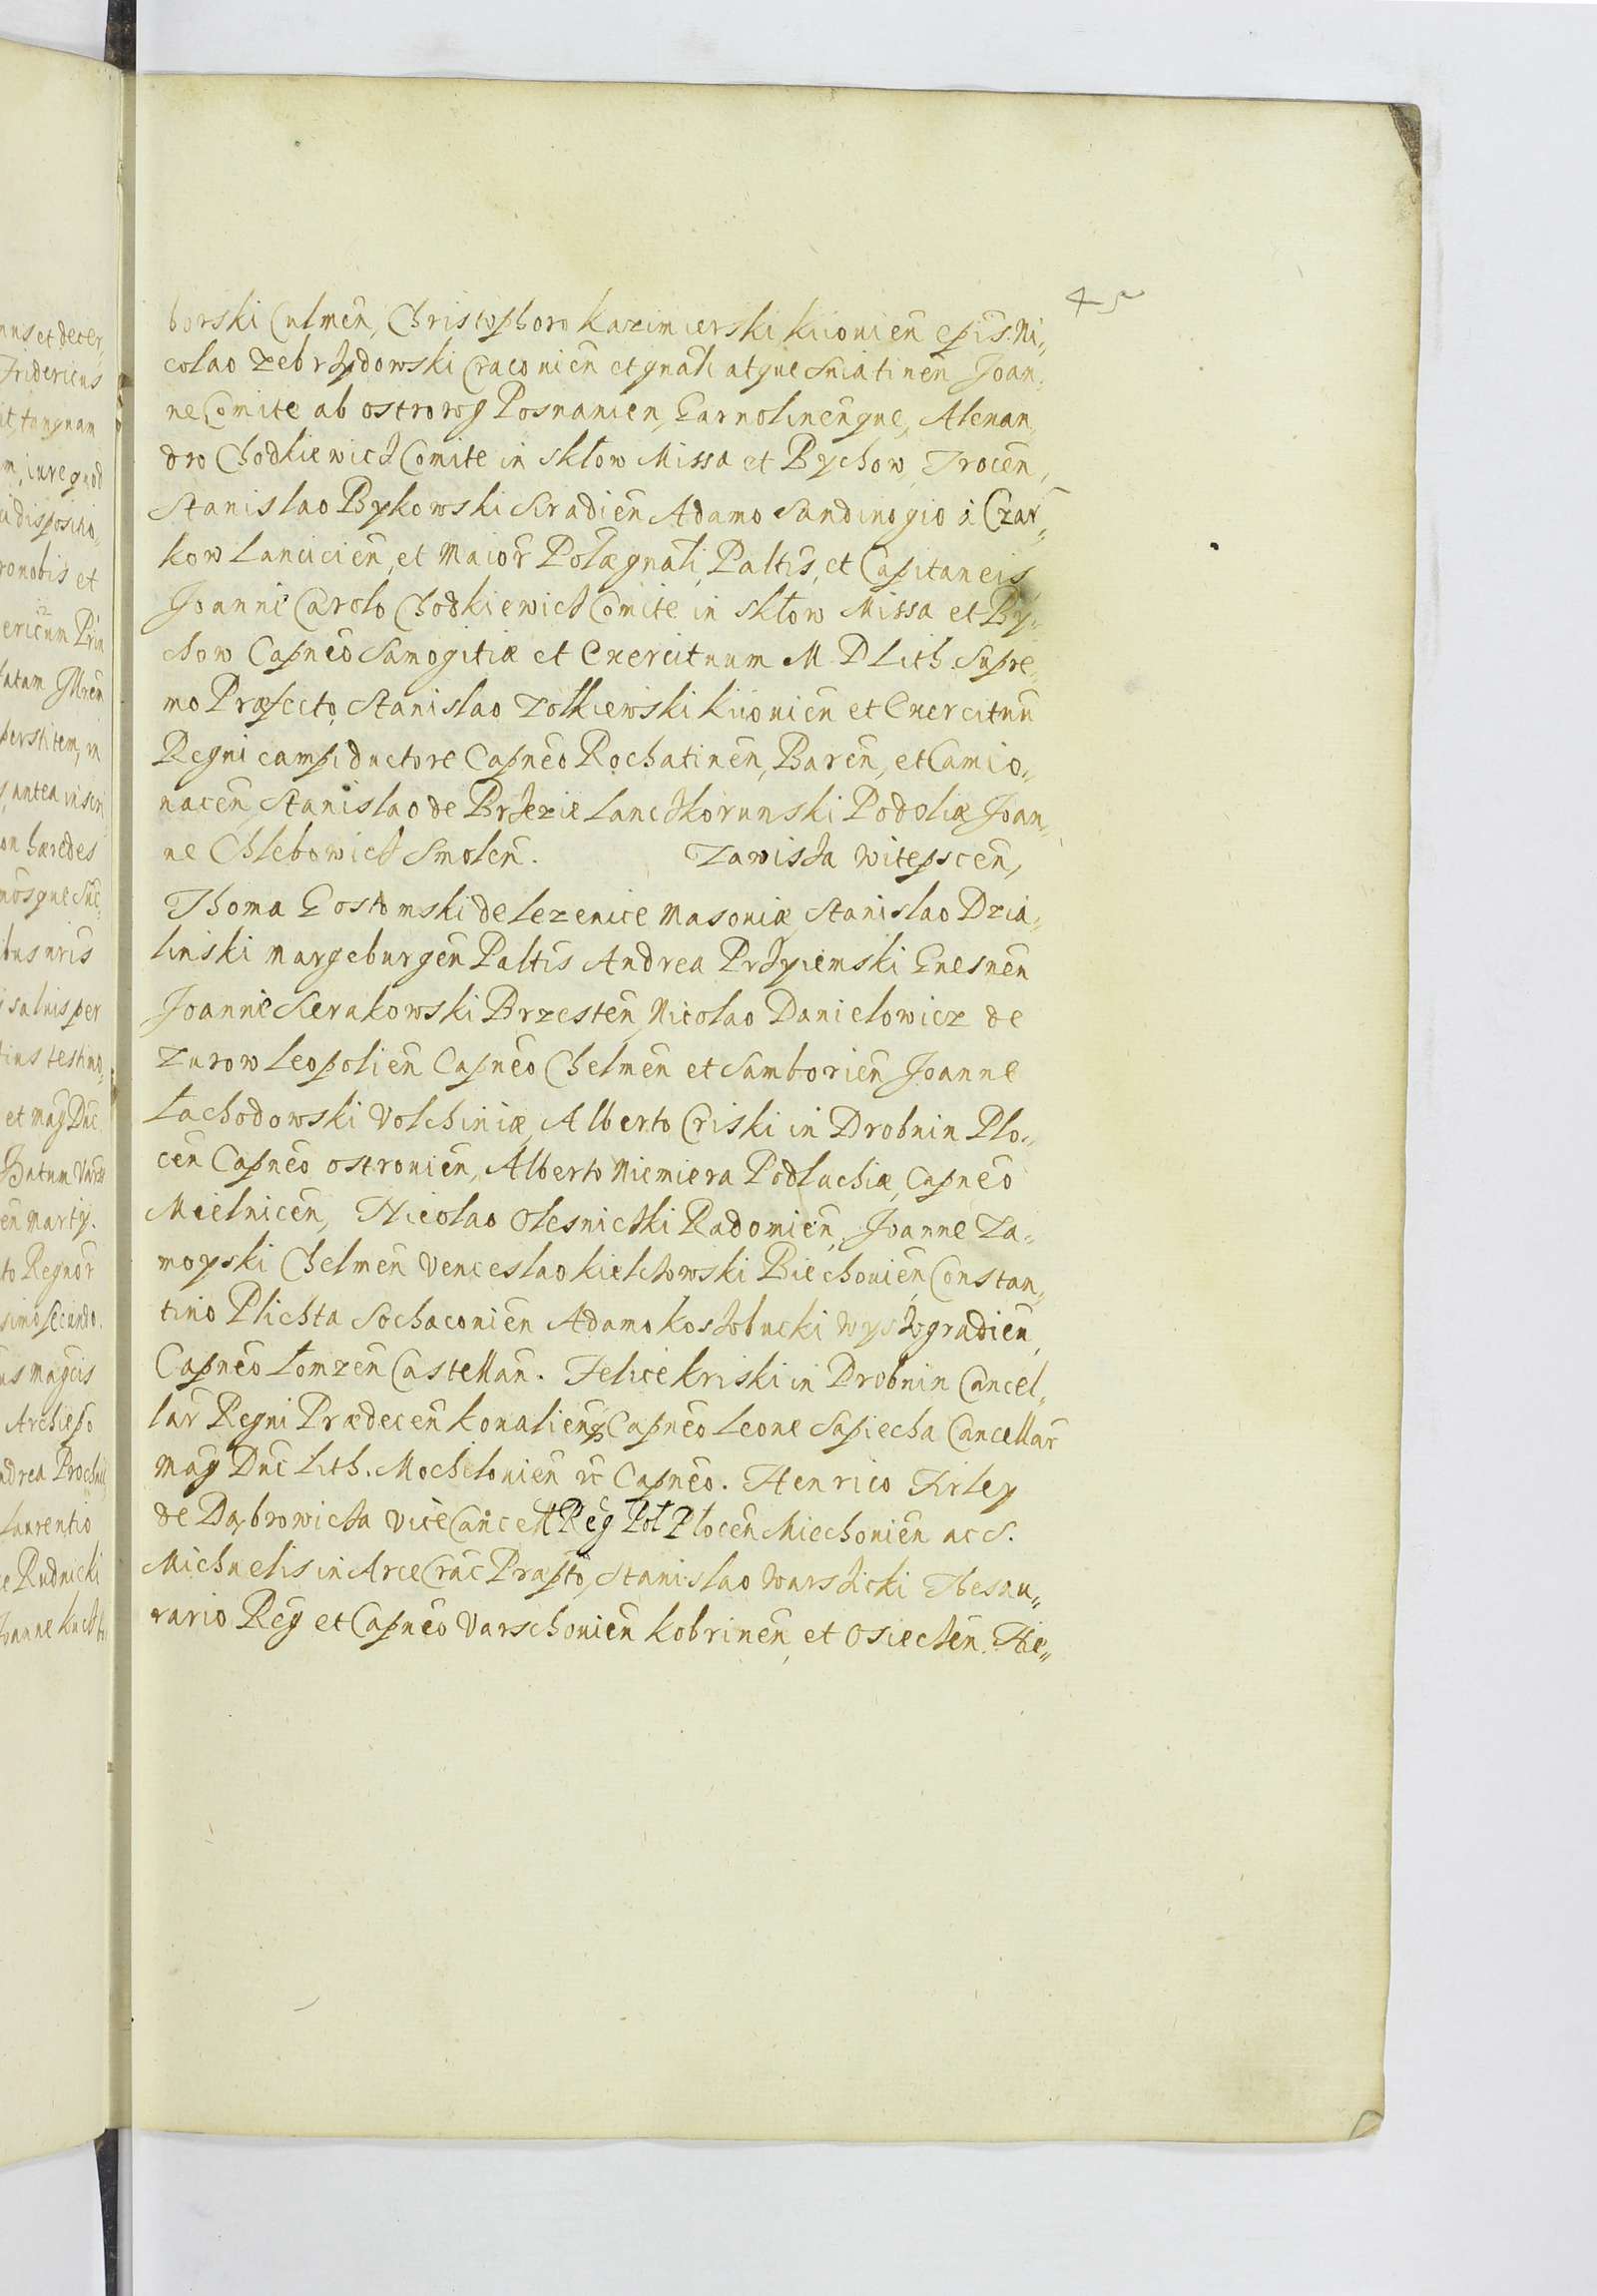 45
borski Culmen̄, Christophoro Kazimierski Kiiouien̄ ep̄is. Ni„
colao Zebrzydowski Craconien̄ et gnāli atque Sniatinen̄ Joan„
ne Comite ab Ostrorog Posnanien, Garnolinen̄que, Alexan„
dro Chodkiewicz Comite in Skłow Missa et Bychow, Trocen̄,
Stanislao Bykowski Siradien̄ Adamo Sandinogio à Czar„
kow Lancicien̄, et Maior̄ Polæ gnāli, Paltis, et Capitaneis
Joanne Carolo Chodkiewicz Comite in Skłow Missa et By„
chow Capneō Samogitiæ et Exercituum M. D Lith. Supre„
mo Præfecto, Stanislao Zolkiewski Kiiouien̄ et Exercituū
Regni campiductore Capneō Rochatinen̄, Baren̄, et Camio„
nacen̄ Stanislao de Brzezie Lanczkorunski Podoliæ Joan„
ne Chlebowicz Smolen̄. Zawisza Witepscen̄,
Thoma Gostomski de Lezenice Masoviæ, Stanislao Dzia„
linski Margeburgen̄ Paltis Andrea Przyiemski Gnesnen̄
Joanne Serakowski Brzesten̄, Nicolao Danielowicz de
Zurow Leopolien̄ Capneō Chelmen̄ et Samborien̄ Joanne
Lachodowski Volchiniæ, Alberto Criski in Drobnin Plo„
cen̄ Capneō Ostrouien̄, Alberto Niemiera Podlachiæ, Capneō
Mielnicen̄, Nicolao Olesniczki Radomien̄, Joanne Za„
moyski Chelmen̄ Venceslao Kielczowski Biechouien̄, Constan„
tino Plichta Sochaconien̄ Adamo Koszobucki Wyszogradien̄,
Capneō Lomzen̄ Castellan̄. Felice Kriski in Drobnin Cancel„
lar̄ Regni Prædecen̄ Konalienq Capneō Leone Sapiecha Cancellar̄
Mag Duc̄ Lith. Mochilouien̄ &c Capneō. Henrico Firley
de Dąbrowicza ViceCancell Reg Pol Plocen̄ Miechouien̄ ac S.
Michaelis in Arce Crac̄ Præpto, Stanislao Warszicki Thesau„
rario Reḡ et Capneō Varschouien̄ Kobrinen̄, et Osieczen̄. Hie„